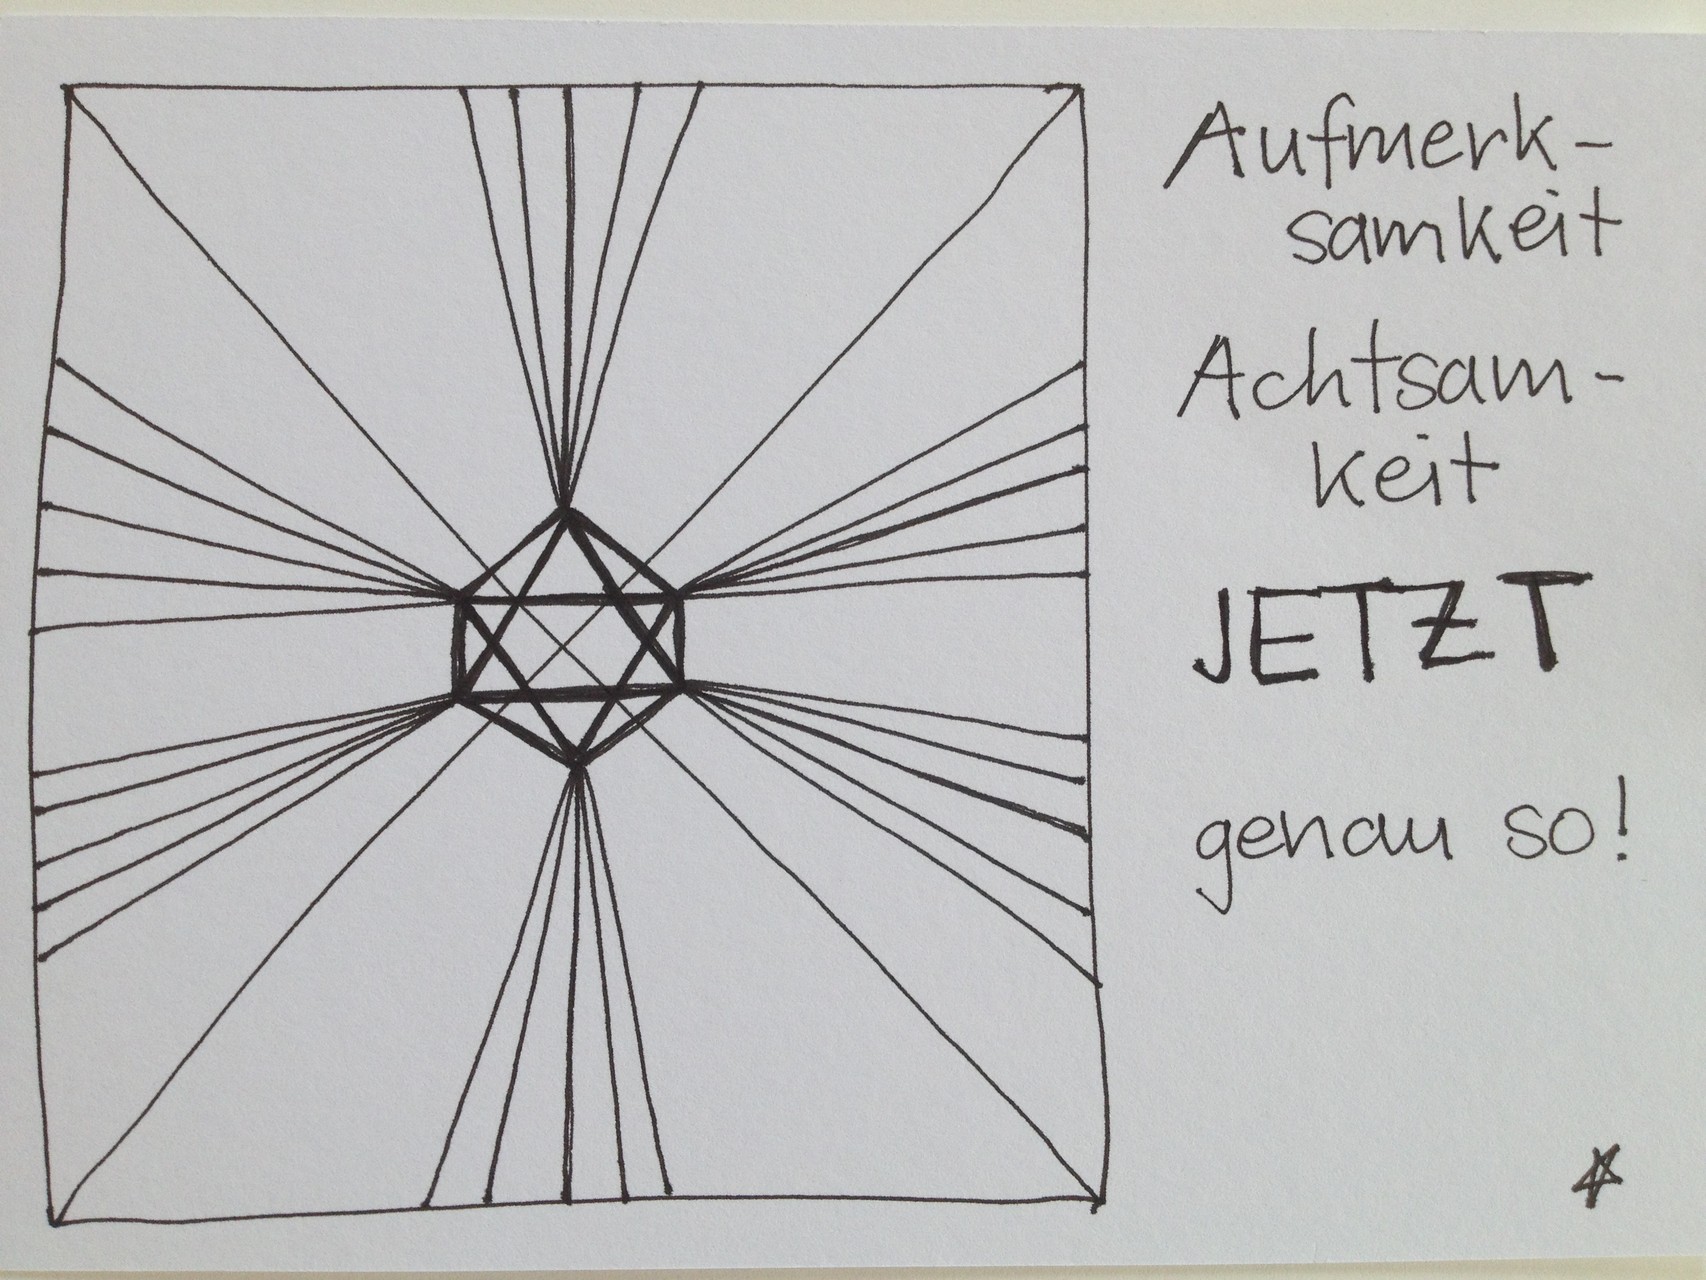 Aufmerk-
samkeit
Achtsam-
keit
JETZT
genau so!